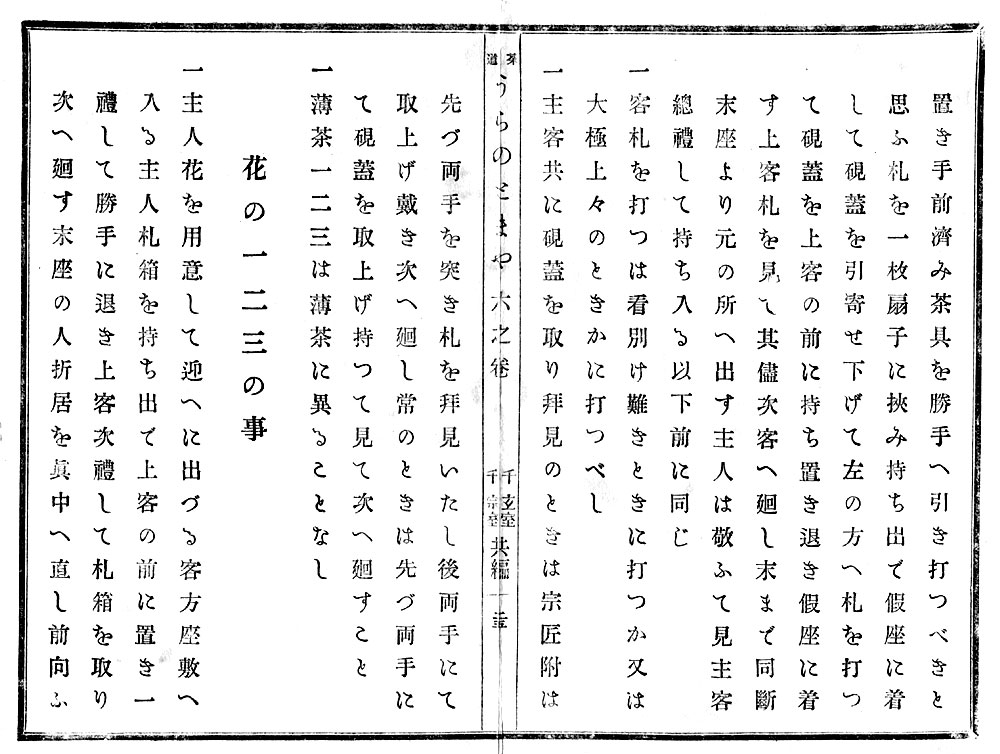 置き手前濟み茶具を勝手へ引き打つべきと
思ふ札を一枚扇子に挾み持ち出で假座に着
して硯蓋を引寄せ下げて左の方へ札を打つ
て硯蓋を上客の前に持ち置き退き假座に着
す上客札を見て其儘次客へ廻し末まで同斷
末座より元の所へ出す主人は敬ふて見主客
總禮して持ち入る以下前に同じ
一客札を打つは看別け難きときに打つか又は
大極上々のときかに打つべし
一主客共に硯蓋を取り拜見のときは宗匠附は
茶道うらのとまや六之卷
千玄室
千宗室
共編
先づ両手を突き札を拜見いたし後両手にて
取上げ戴き次へ廻し常のときは先づ両手に
て硯蓋を取上げ持つて見て次へ廻すこと
一薄茶一二三は薄茶に異ることなし
花の一二三の事
一主人花を用意して迎へに出づる客方座敷へ
入る主人札箱を持ち出で上客の前に置き一
禮して勝手に退き上客次禮して札箱を取り
次へ廻す末座の人折居を眞中へ直し前向ふ